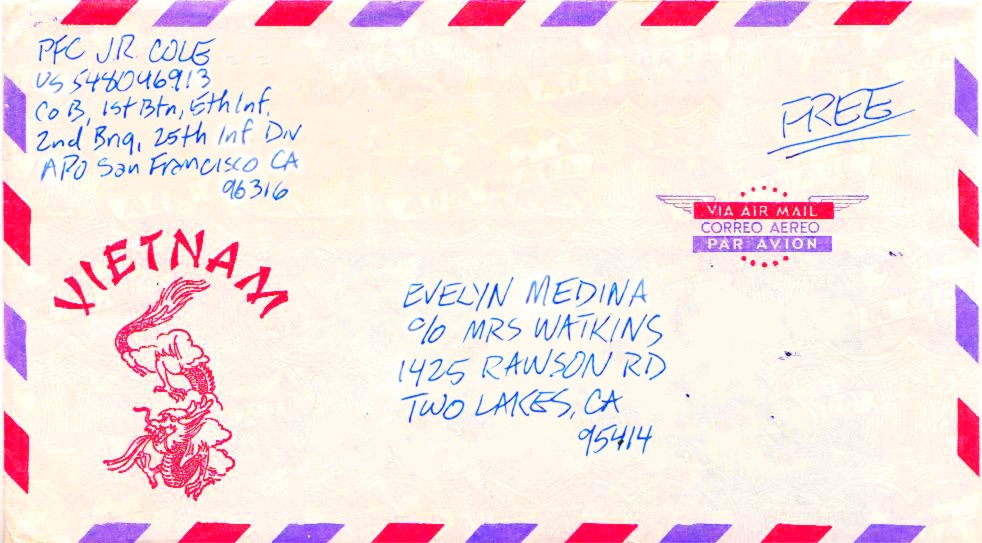 PFC J.R. COLE
US 548046913
Co B, 1st Btn, 5th Inf.
2nd Bng, 25th Inf. Div
APO San Francisco CA
96316
FREE
VIA AIR MAIL
CORREO AEREO
PAR AVION
VIETNAM
EVELYN MEDINA
c/o MRS WATKINS
1425 RAWSON RD
TWO LAKES, CA
95414